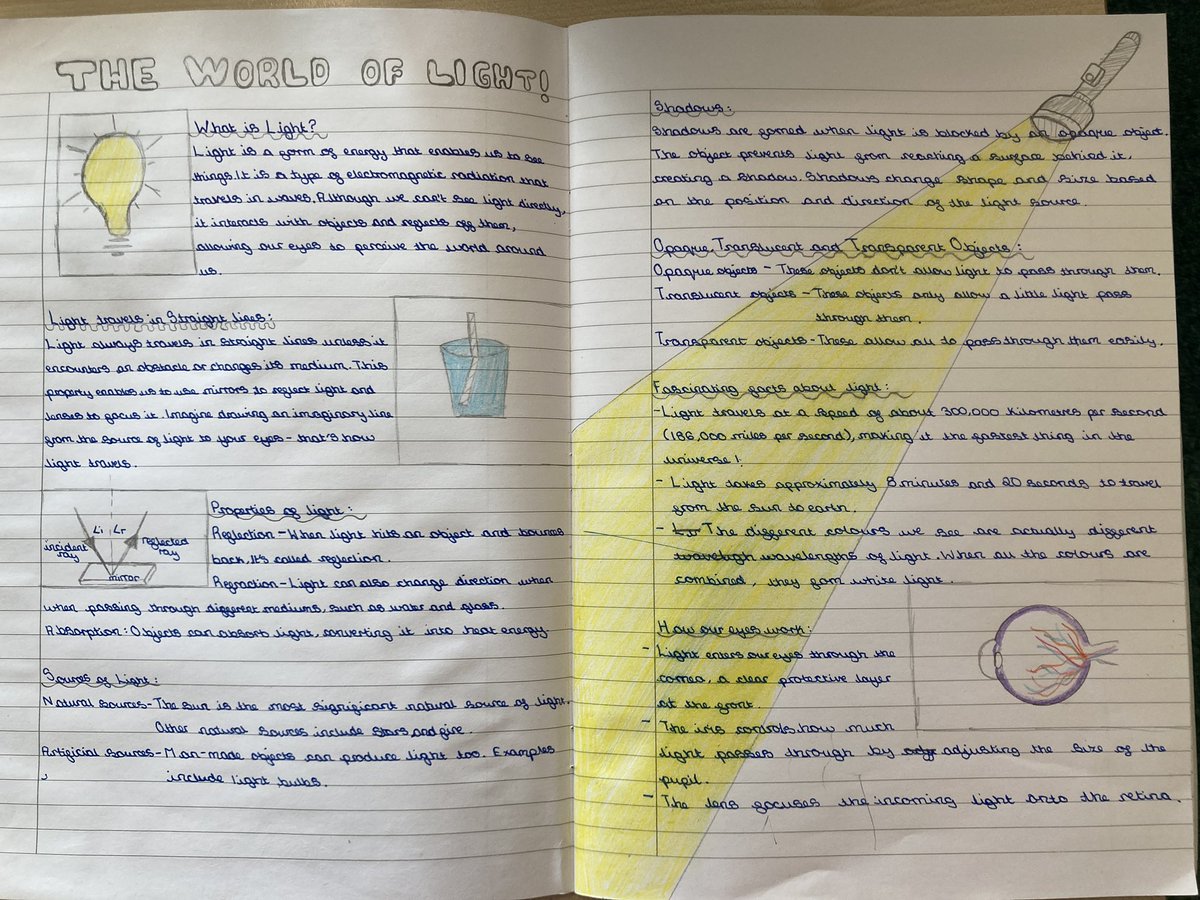 THE WORLD OF LIGHT!
What is Light?
Light is a form of energy that enables us to see
things. It is a type of electromagnetic radiation that
travels in waves. Although we can't see light directly,
it interacts with objects and reflects off them,
allowing our eyes to perceive the world around
us.
Light travels in Straight lines:
Light always travels in straight lines unless it
encounters an obstacle or changes its medium. This
property enables us to use mirrors to reflect light and
lenses to focus it. Imagine drawing an imaginary line
from the source of light to your eyes - that's how
light travels.
Li Lr
incident ray
reflected ray
mirror
Properties of light:
Reflection - When light hits an object and bounces
back, it's called reflection.
Refraction - Light can also change direction when
when passing through different mediums, such as water and glass.
Absorption: Objects can absorb light, converting it into heat energy
Sources of Light:
Natural sources - The sun is the most significant natural source of light.
Other natural sources include stars and fire.
Artificial sources - Man-made objects can produce light too. Examples
include light bulbs.
Shadows:
Shadows are formed when light is blocked by an opaque object.
The object prevents light from reaching a surface behind it,
creating a shadow. Shadows change shape and size based
on the position and direction of the light source.
Opaque, Translucent and Transparent Objects:
Opaque objects - These objects don't allow light to pass through them.
Translucent objects - These objects only allow a little light pass
through them.
Transparent objects - These allow all to pass through them easily.
Fascinating facts about light:
- Light travels at a speed of about 300,000 kilometres per second
(186,000 miles per second), making it the fastest thing in the
universe!
- Light takes approximately 8 minutes and 20 seconds to travel
from the sun to earth.
- The different colours we see are actually different
wavelengths of light. When all the colours are
combined, they form white light.
How our eyes work:
- Light enters our eyes through the
cornea, a clear protective layer
at the front.
- The iris controls how much
light passes through by adjusting the size of the
pupil.
- The lens focuses the incoming light onto the retina.